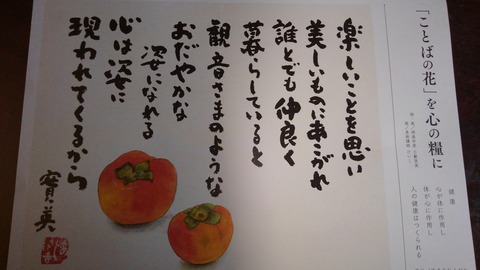 「ことばの花」を心の糧に
健康
心が体に作用し
体が心に作用し
人の健康はつくられる
楽しいことを思い
美しいものにあこがれ
誰とでも仲良く
暮らしていると
観音さまのような
おだやかな
姿になれる
心は姿に
現われてくるから
寳美